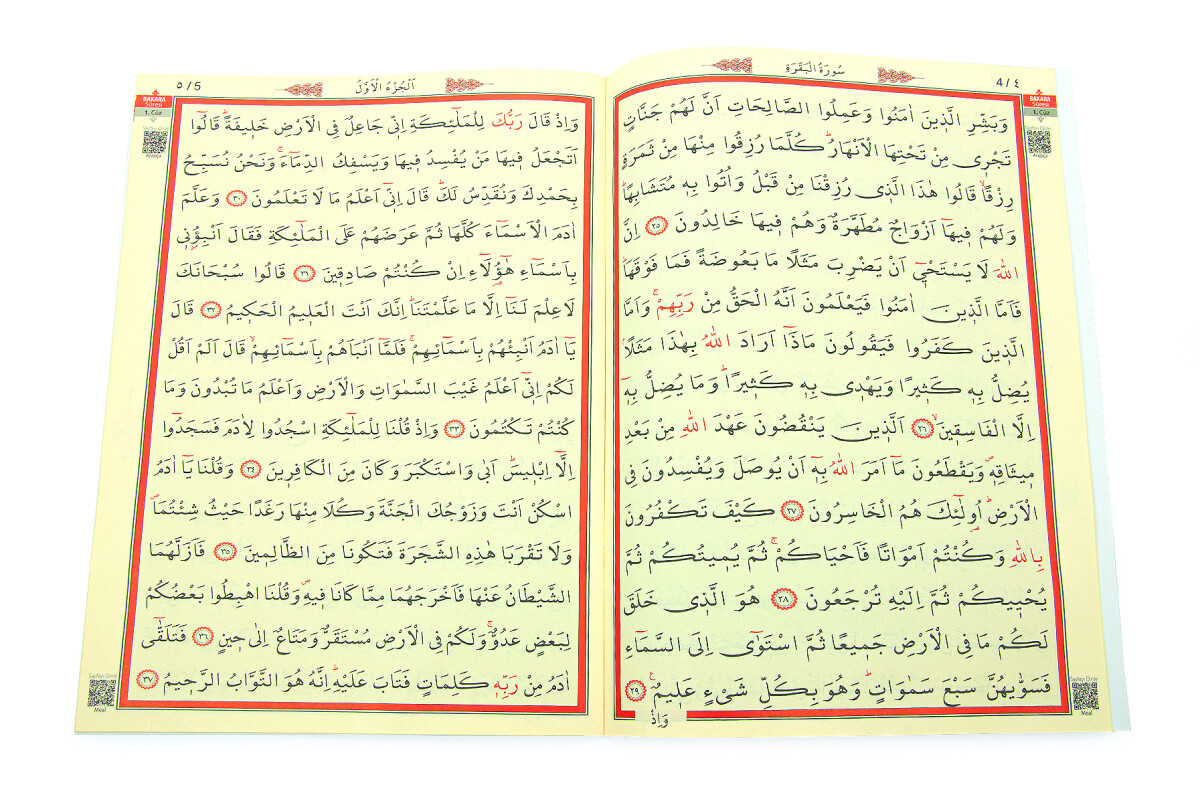 سُورَةُ الْبَقَرَةِ
4/٤
BAKARA
Sûresi
1. Cüz
Arapça
وَبَشِّرِ الَّذٖينَ اٰمَنُوا وَعَمِلُوا الصَّالِحَاتِ اَنَّ لَهُمْ جَنَّاتٍ
تَجْرٖى مِنْ تَحْتِهَا الْاَنْهَارُؕ كُلَّمَا رُزِقُوا مِنْهَا مِنْ ثَمَرَةٍ
رِزْقًاۙ قَالُوا هٰذَا الَّذٖى رُزِقْنَا مِنْ قَبْلُ وَاُتُوا بِهٖ مُتَشَابِهًاؕ
وَلَهُمْ فٖيهَٓا اَزْوَاجٌ مُطَهَّرَةٌ وَهُمْ فٖيهَا خَالِدُونَ ﴿٢٥﴾ اِنَّ
اللّٰهَ لَا يَسْتَحْيٖٓ اَنْ يَضْرِبَ مَثَلًا مَا بَعُوضَةً فَمَا فَوْقَهَاؕ
فَاَمَّا الَّذٖينَ اٰمَنُوا فَيَعْلَمُونَ اَنَّهُ الْحَقُّ مِنْ رَبِّهِمْۚ وَاَمَّا
الَّذٖينَ كَفَرُوا فَيَقُولُونَ مَاذَٓا اَرَادَ اللّٰهُ بِهٰذَا مَثَلًاۘ
يُضِلُّ بِهٖ كَثٖيرًا وَيَهْدٖى بِهٖ كَثٖيرًاؕ وَمَا يُضِلُّ بِهٖٓ
اِلَّا الْفَاسِقٖينَۙ ﴿٢٦﴾ اَلَّذٖينَ يَنْقُضُونَ عَهْدَ اللّٰهِ مِنْ بَعْدِ
مٖيثَاقِهٖࣕ وَيَقْطَعُونَ مَٓا اَمَرَ اللّٰهُ بِهٖٓ اَنْ يُوصَلَ وَيُفْسِدُونَ فِى
الْاَرْضِؕ اُو۬لٰٓئِكَ هُمُ الْخَاسِرُونَ ﴿٢٧﴾ كَيْفَ تَكْفُرُونَ
بِاللّٰهِ وَكُنْتُمْ اَمْوَاتًا فَاَحْيَاكُمْۚ ثُمَّ يُمٖيتُكُمْ ثُمَّ
يُحْيٖيكُمْ ثُمَّ اِلَيْهِ تُرْجَعُونَ ﴿٢٨﴾ هُوَ الَّذٖى خَلَقَ
لَكُمْ مَا فِى الْاَرْضِ جَمٖيعًا ثُمَّ اسْتَوٰٓى اِلَى السَّمَٓاءِ
فَسَوّٰيهُنَّ سَبْعَ سَمٰوَاتٍؕ وَهُوَ بِكُلِّ شَىْءٍ عَلٖيمٌۚ ﴿٢٩﴾
وَاِذْ
Sayfayı Dinle
Meal
٥/5
اَلْجُزْءُ الْاَوَّلُ
BAKARA
Sûresi
1. Cüz
Arapça
وَاِذْ قَالَ رَبُّكَ لِلْمَلٰٓئِكَةِ اِنّٖى جَاعِلٌ فِى الْاَرْضِ خَلٖيفَةًؕ قَالُٓوا
اَتَجْعَلُ فٖيهَا مَنْ يُفْسِدُ فٖيهَا وَيَسْفِكُ الدِّمَٓاءَۚ وَنَحْنُ نُسَبِّحُ
بِحَمْدِكَ وَنُقَدِّسُ لَكَؕ قَالَ اِنّٖٓى اَعْلَمُ مَا لَا تَعْلَمُونَ ﴿٣٠﴾ وَعَلَّمَ
اٰدَمَ الْاَسْمَٓاءَ كُلَّهَا ثُمَّ عَرَضَهُمْ عَلَى الْمَلٰٓئِكَةِ فَقَالَ اَنْبِؤُ۫نٖى
بِاَسْمَٓاءِ هٰٓؤُ۬لَٓاءِ اِنْ كُنْتُمْ صَادِقٖينَ ﴿٣١﴾ قَالُوا سُبْحَانَكَ
لَا عِلْمَ لَنَٓا اِلَّا مَا عَلَّمْتَنَاؕ اِنَّكَ اَنْتَ الْعَلٖيمُ الْحَكٖيمُ ﴿٣٢﴾ قَالَ
يَٓا اٰدَمُ اَنْبِئْهُمْ بِاَسْمَٓائِهِمْۚ فَلَمَّٓا اَنْبَاَهُمْ بِاَسْمَٓائِهِمْۙ قَالَ اَلَمْ اَقُلْ
لَكُمْ اِنّٖٓى اَعْلَمُ غَيْبَ السَّمٰوَاتِ وَالْاَرْضِ وَاَعْلَمُ مَا تُبْدُونَ وَمَا
كُنْتُمْ تَكْتُمُونَ ﴿٣٣﴾ وَاِذْ قُلْنَا لِلْمَلٰٓئِكَةِ اسْجُدُوا لِاٰدَمَ فَسَجَدُٓوا
اِلَّٓا اِبْلٖيسَؕ اَبٰى وَاسْتَكْبَرَ وَكَانَ مِنَ الْكَافِرٖينَ ﴿٣٤﴾ وَقُلْنَا يَٓا اٰدَمُ
اسْكُنْ اَنْتَ وَزَوْجُكَ الْجَنَّةَ وَكُلَا مِنْهَا رَغَدًا حَيْثُ شِئْتُمَاࣕ
وَلَا تَقْرَبَا هٰذِهِ الشَّجَرَةَ فَتَكُونَا مِنَ الظَّالِمٖينَ ﴿٣٥﴾ فَاَزَلَّهُمَا
الشَّيْطَانُ عَنْهَا فَاَخْرَجَهُمَا مِمَّا كَانَا فٖيهِࣕ وَقُلْنَا اهْبِطُوا بَعْضُكُمْ
لِبَعْضٍ عَدُوٌّۚ وَلَكُمْ فِى الْاَرْضِ مُسْتَقَرٌّ وَمَتَاعٌ اِلٰى حٖينٍ ﴿٣٦﴾ فَتَلَقّٰٓى
اٰدَمُ مِنْ رَبِّهٖ كَلِمَاتٍ فَتَابَ عَلَيْهِؕ اِنَّهُ هُوَ التَّوَّابُ الرَّحٖيمُ ﴿٣٧﴾
Sayfayı Dinle
Meal